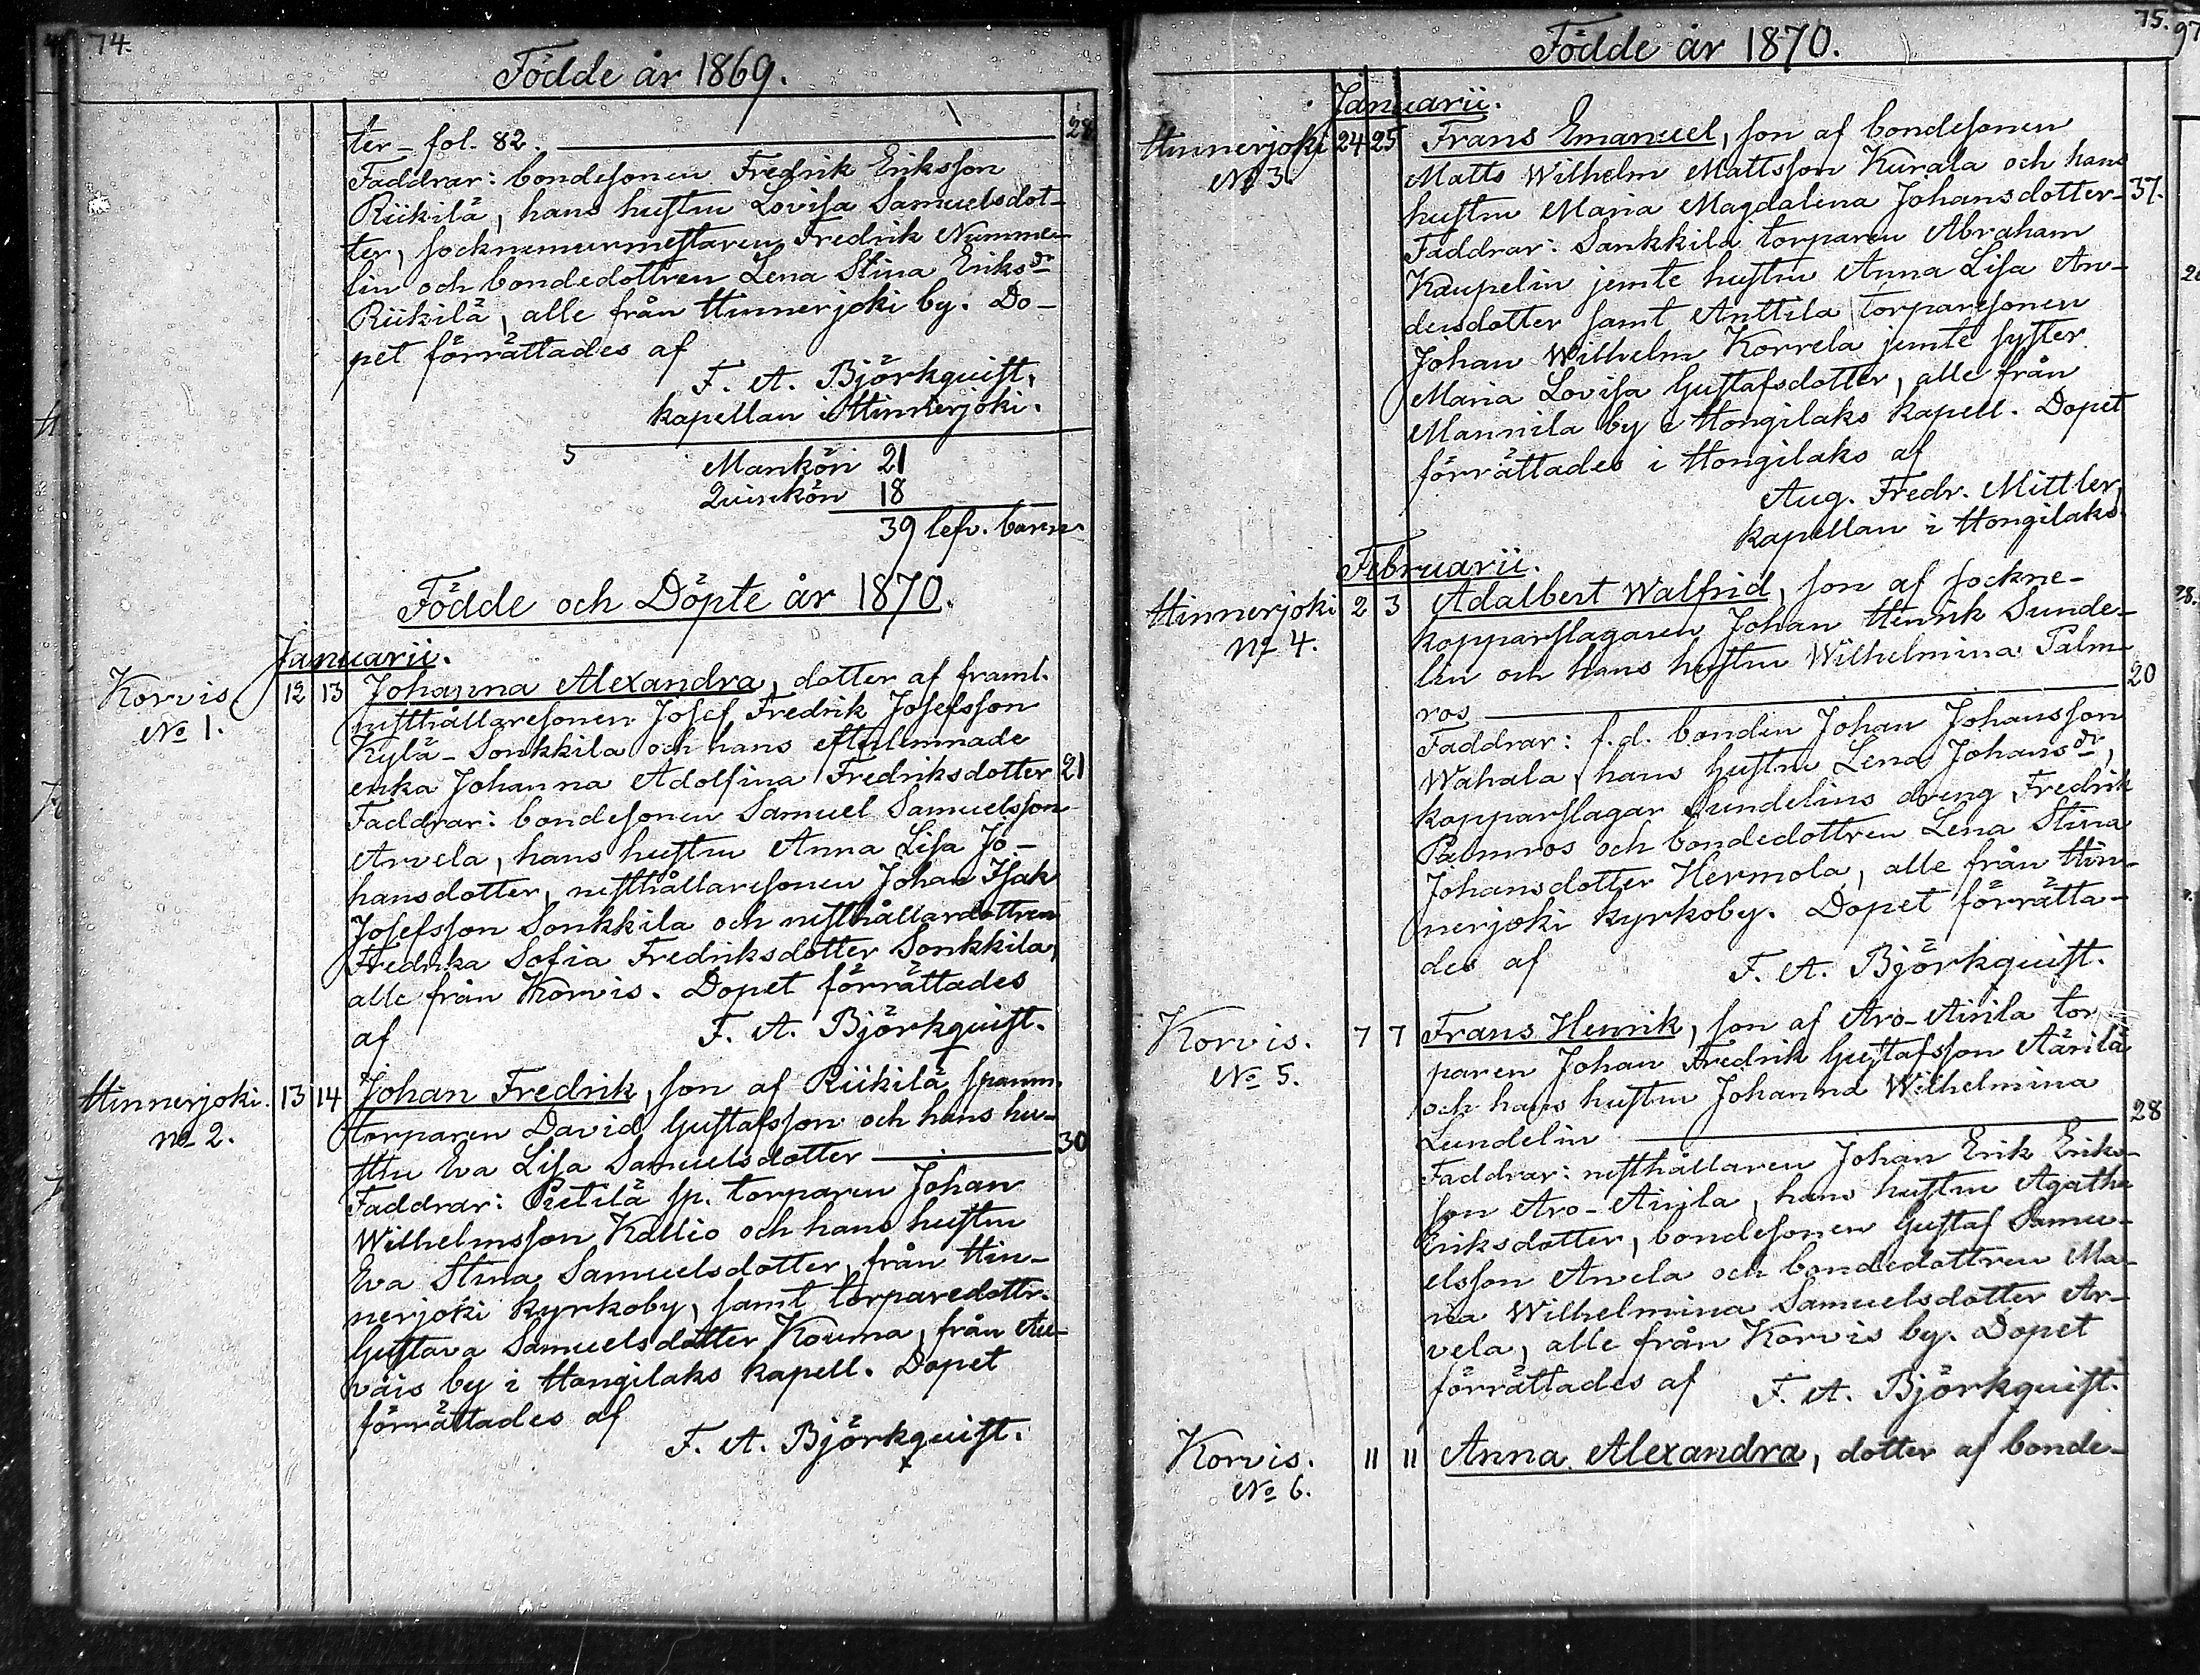 74.
Födde år 1869.
ter – fol. 82. 28
Faddrar: bondesonen Fredrik Eriksson
Riikilä, hans hustru Lovisa Samuelsdot-
ter, socknemurmestaren Fredrik Numme-
lin och bondedottren Lena Stina Eriksdr
Riikilä, alle från Hinnerjoki by. Do-
pet förrättades af
F. A. Björkquist,
kapellan i Hinnerjoki.
5
Mankön 21
Quinkön 18
39 lefv. barn
Födde och Döpte år 1870.
Januarii.
Korvis 12 13 Johanna Alexandra, dotter af framl.
No 1. rusthållaresonen Josef Fredrik Josefsson
Kylä-Sonkkila och hans efterlemnade
enka Johanna Adolfina Fredriksdotter 21
Faddrar: bondesonen Samuel Samuelsson
Arvela, hans hustru Anna Lisa Jo-
hansdotter, rusthållaresonen Johan Isak
Josefsson Sonkkila och rusthållardottren
Fredrika Sofia Fredriksdotter Sonkkila,
alle från Korvis. Dopet förrättades
af F. A. Björkquist.
Hinnerjoki. 13 14 Johan Fredrik, son af Riikilä spanm.
No 2. torparen David Gustafsson och hans hu-
stru Eva Lisa Samuelsdotter 30
Faddrar: Pietilä sp. torparen Johan
Wilhelmsson Kallio och hans hustru
Eva Stina Samuelsdotter, från Hin-
nerjoki kyrkoby, samt torparedottr.
Gustava Samuelsdotter Kouma, från Au-
vais by i Hongilaks kapell. Dopet
förrättades af
F. A. Björkquist.
75.
97
Födde år 1870.
Januarii.
Hinnerjoki 24 25 Frans Emanuel, son af bondesonen
No 3. Matts Wilhelm Mattsson Kurala och hans
hustru Maria Magdalena Johansdotter 37.
Faddrar: Sankkila torparen Abraham
Kaupelin jemte hustru Anna Lisa An-
dersdotter samt Anttila torparesonen
Johan Wilhelm Korrela jemte syster
Maria Lovisa Gustafsdotter, alle från
Mannila by i Hongilaks kapell. Dopet
förrättades i Hongilaks af
Aug. Fredr. Mittler,
kapellan i Hongilaks.
Februarii.
Hinnerjoki 2 3 Adalbert Walfrid, son af sockne-
No 4. kopparslagaren Johan Henrik Sunde-
lin och hans hustru Wilhelmina Palm-
ros 20
Faddrar: f.d. bonden Johan Johansson
Wahala, hans hustru Lena Johansdr,
kopparslagar Sundelins dreng Fredrik
Palmros och bondedottren Lena Stina
Johansdotter Hermola, alle från Hin-
nerjoki kyrkoby. Dopet förrätta-
des af F. A. Björkquist.
Korvis. 7 7 Frans Henrik, son af Aro-Airila tor-
No 5. paren Johan Fredrik Gustafsson Äärilä
och hans hustru Johanna Wilhelmina
Lundelin 28
Faddrar: rusthållaren Johan Erik Eriks-
son Aro-Airila, hans hustru Agatha
Eriksdotter, bondesonen Gustaf Samu-
elsson Arvela och bondedottren Ma-
ria Wilhelmina Samuelsdotter Ar-
vela, alle från Korvis by. Dopet
förrättades af F. A. Björkquist.
Korvis. 11 11 Anna Alexandra, dotter af bonde-
No 6.